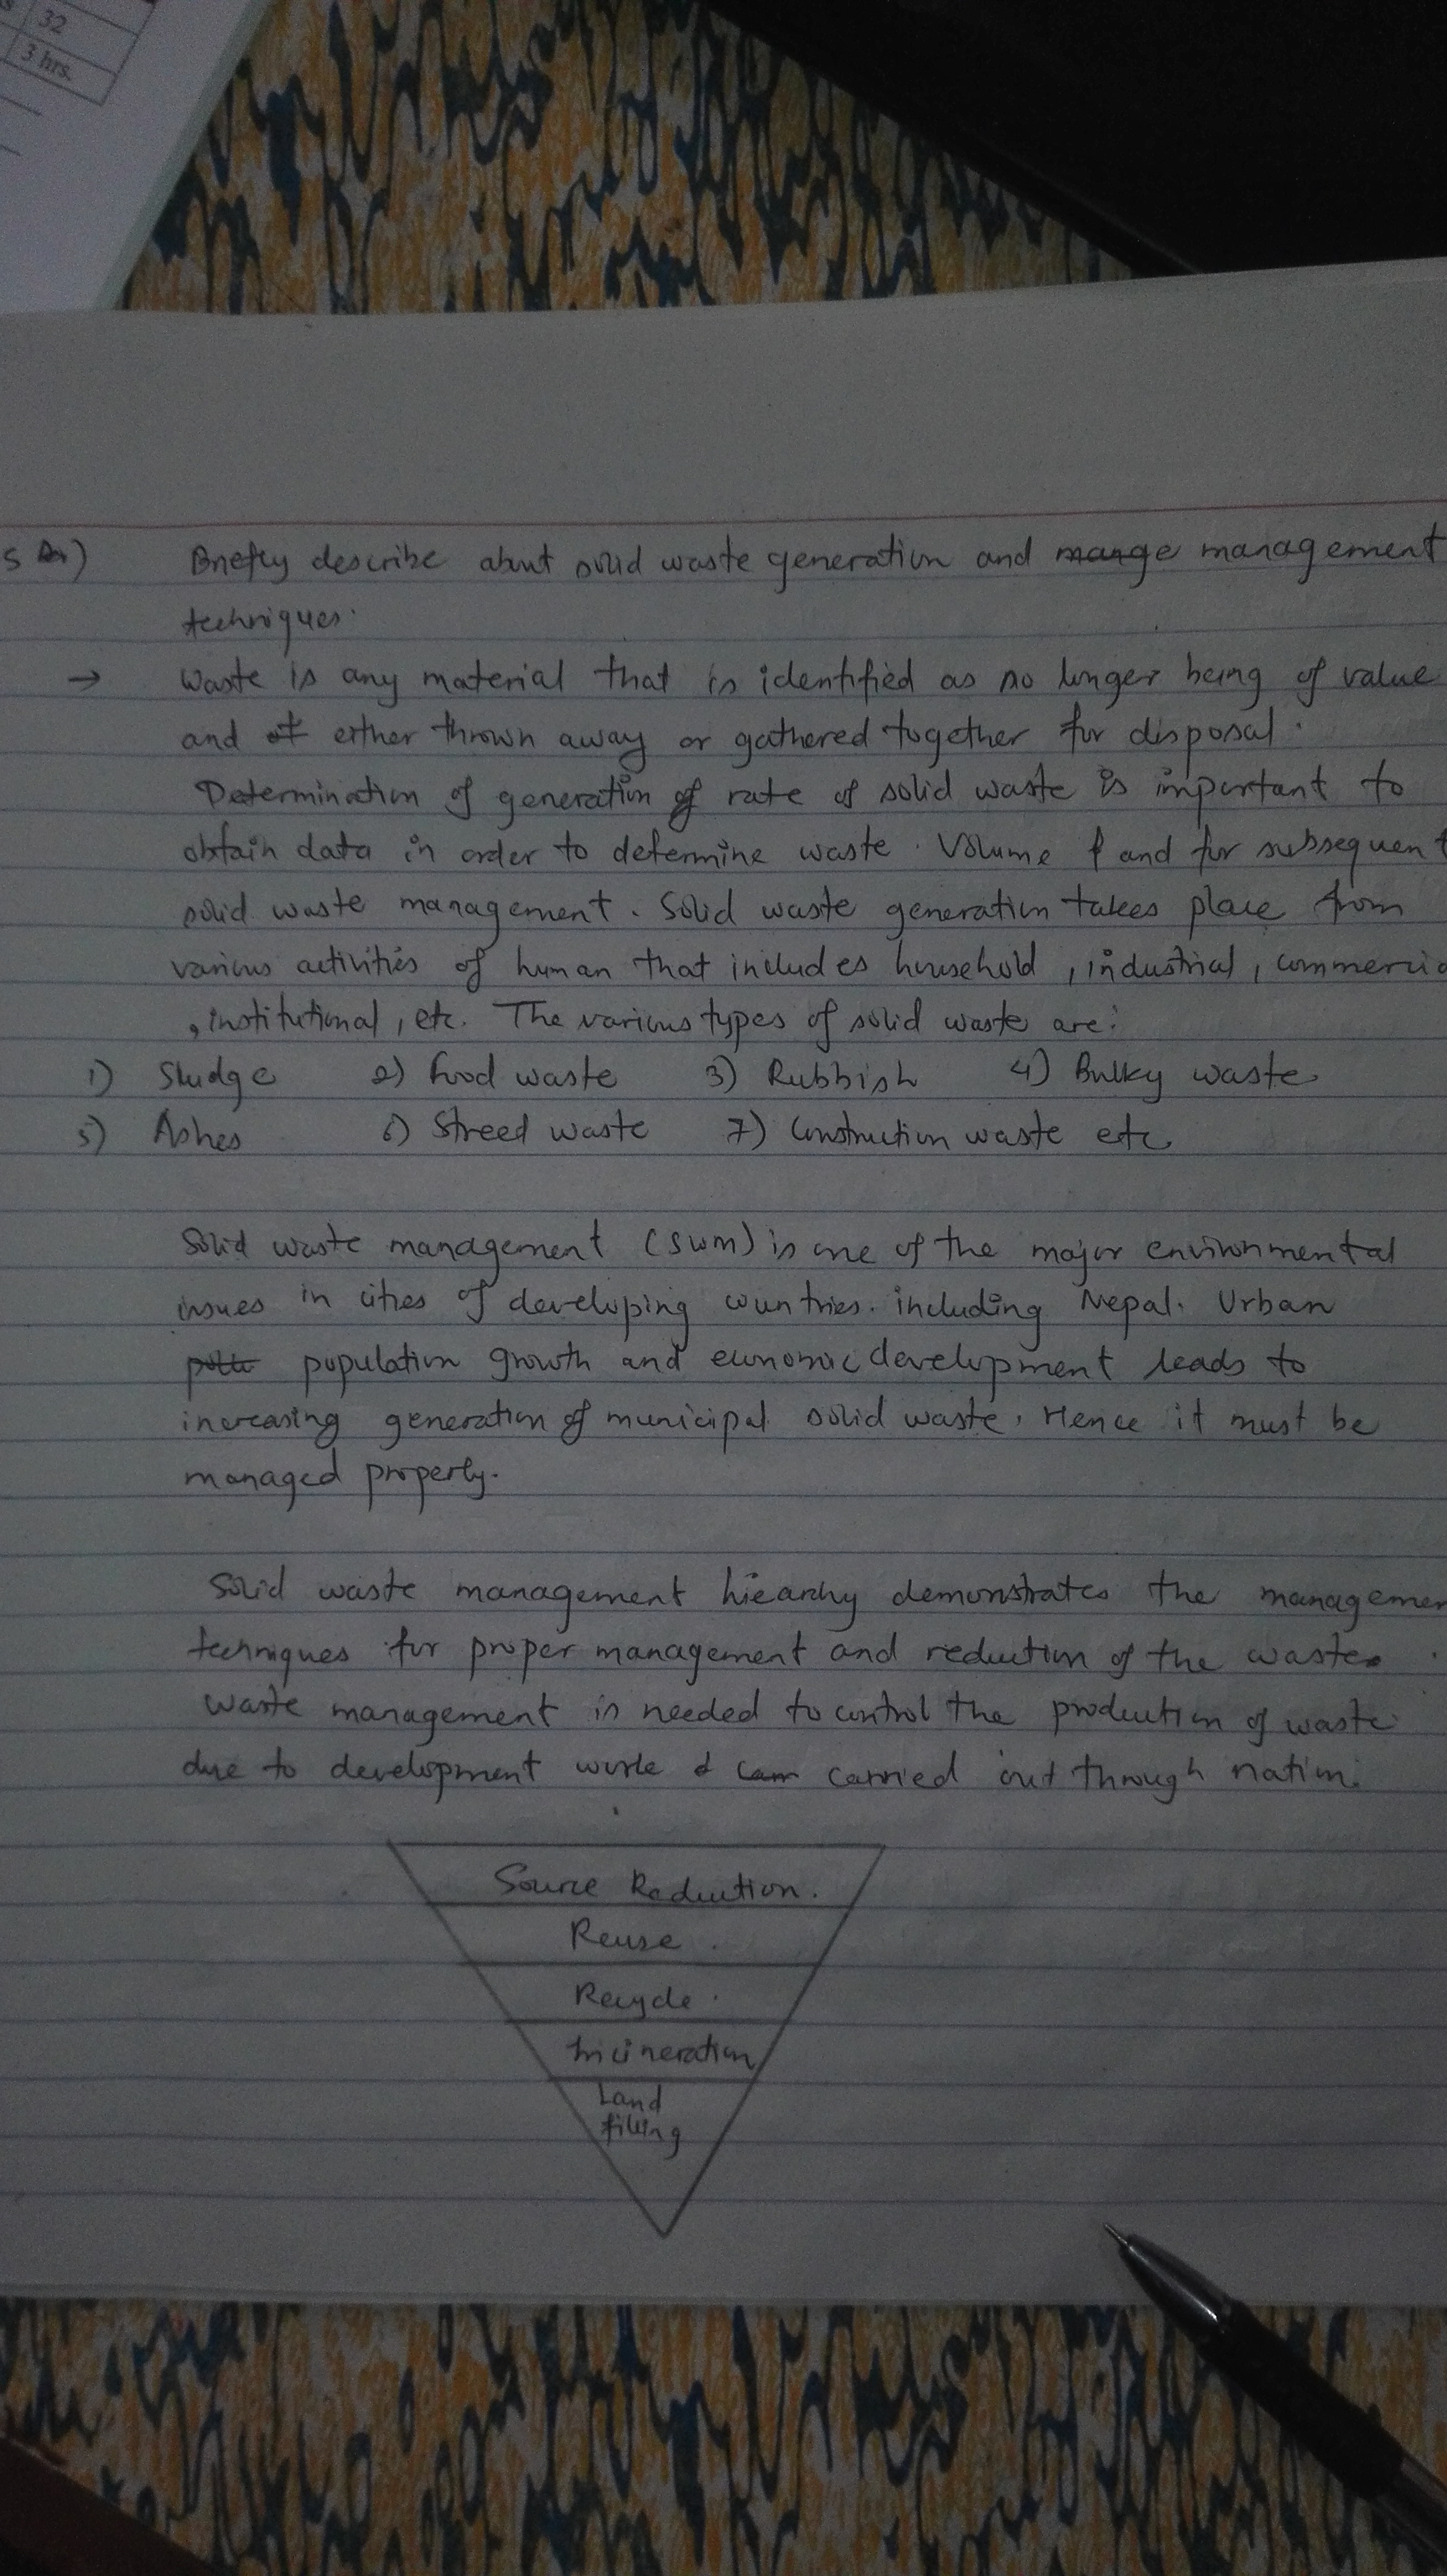 32
3 hrs.
5 a)
Briefly describe about solid waste generation and mange management
techniques.
→ Waste is any material that is identified as no longer being of value
and of either thrown away or gathered together for disposal.
Determination of generation of rate of solid waste is important to
obtain data in order to determine waste. Volume f and for subsequent
solid waste management. Solid waste generation takes place from
various activities of human that includes household, industrial, commercia
, institutional, etc. The various types of solid waste are:
1) Sludge 2) Food waste 3) Rubbish 4) Bulky waste
5) Ashes 6) Streed waste 7) Construction waste etc
Solid waste management (SWM) is one of the major environmental
issues in cities of developing countries. including Nepal. Urban
population growth and economic development leads to
increasing generation of municipal solid waste. Hence it must be
managed properly.
Solid waste management hiearhy demonstrates the managemen
techniques for proper management and reduction of the waste.
Waste management is needed to control the production of waste
due to development work carried out through nation.
Source Reduction.
Reuse.
Recycle.
Incineration
Land
filling